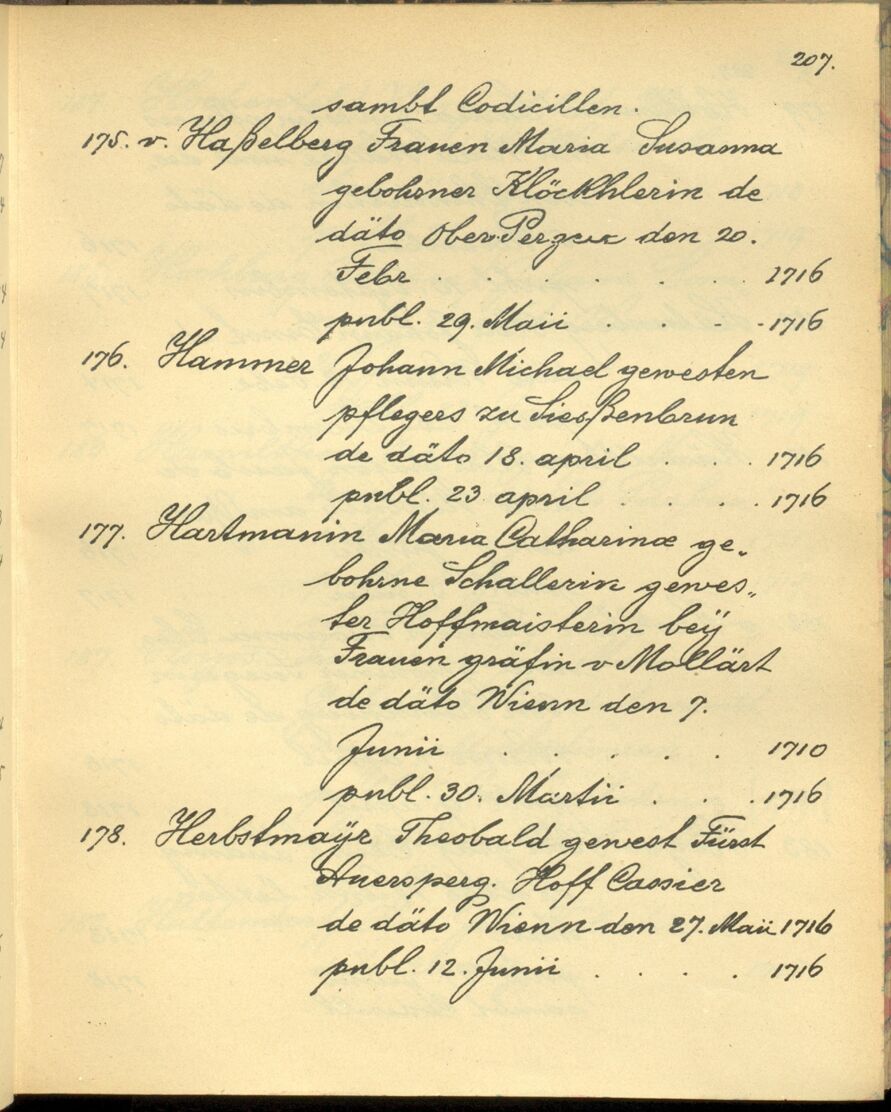 207.
sambt Codicillen.
175. v. Haßelberg Frauen Maria Susanna
gebohrner Klöckhlerin de
däto Ober den 20.
Febr . . . . . 1716
publ. 29. Maii . . . . 1716
176. Hammer Johann Michael gewesten
pflegers zu Siesßenbrun
de däto 18. april . . . 1716
publ. 23 april . . . . 1716
177. Hartmanin Maria Catharina ge„
bohrne Schallerin gewes„
ter Hoffmaisterin beÿ
Frauen gräfin v Mollärt
de däto Wienn den 7.
Junii . . . . . 1710
publ. 30. Martii . . . 1716
178. Herbstmaÿr Theobald gewest Fürst
Auersperg. Hoff Cassier
de däto Wienn den 27. Maii 1716
publ. 12. Junii . . . . 1716